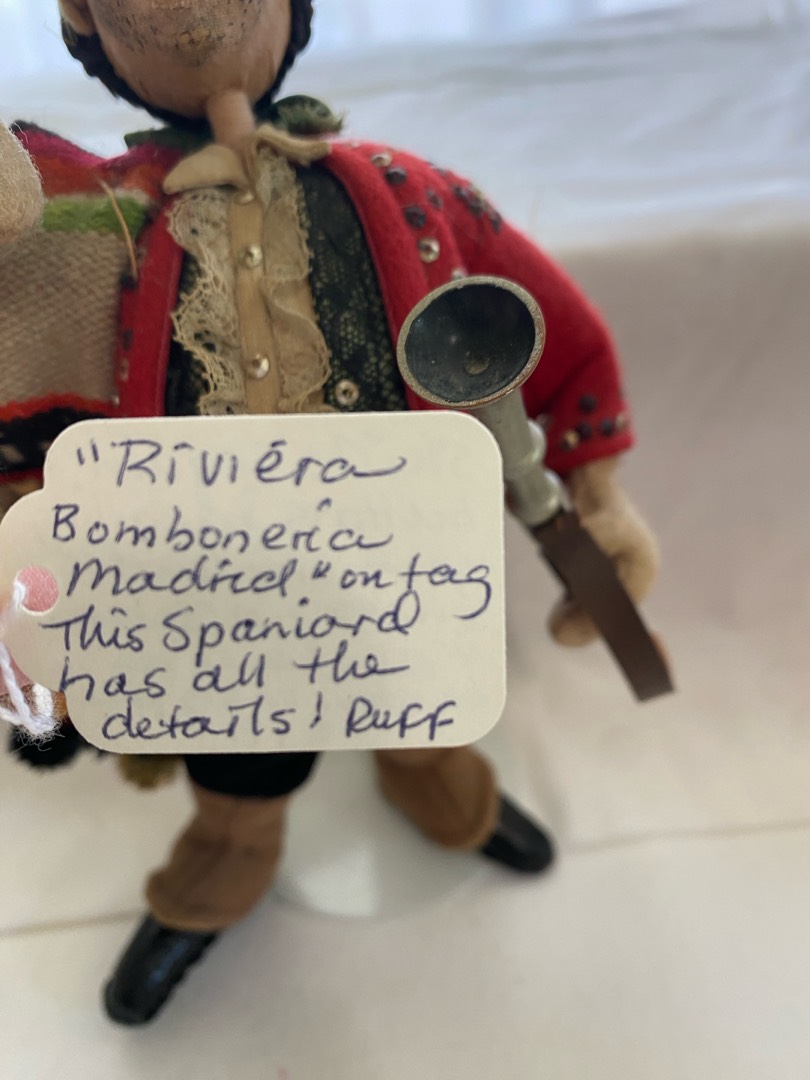 "Riviéra
Bombonería
Madrid" on tag
This Spaniard
has all the
details! Ruff